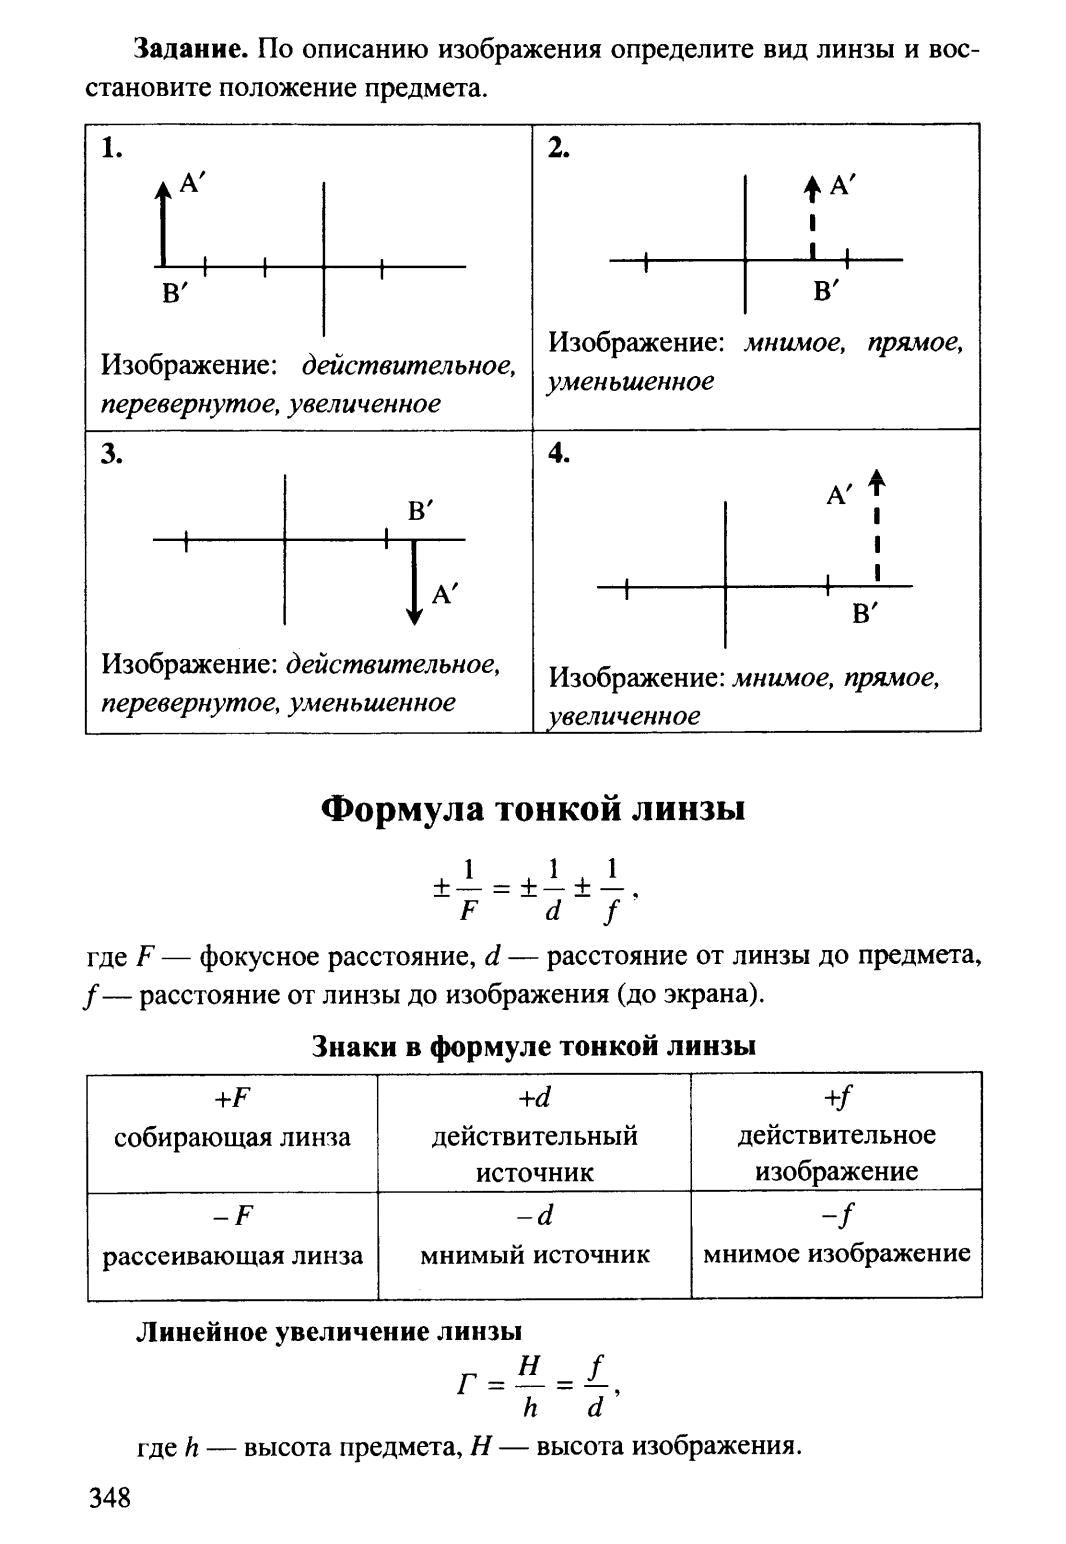 Задание. По описанию изображения определите вид линзы и вос-
становите положение предмета.
1.
A′
B′
Изображение: действительное,
перевернутое, увеличенное
2.
A′
B′
Изображение: мнимое, прямое,
уменьшенное
3.
B′
A′
Изображение: действительное,
перевернутое, уменьшенное
4.
A′
B′
Изображение: мнимое, прямое,
увеличенное
Формула тонкой линзы
± 1/F = ± 1/d ± 1/f,
где F — фокусное расстояние, d — расстояние от линзы до предмета,
f — расстояние от линзы до изображения (до экрана).
Знаки в формуле тонкой линзы
+F
собирающая линза
+d
действительный
источник
+f
действительное
изображение
–F
рассеивающая линза
–d
мнимый источник
–f
мнимое изображение
Линейное увеличение линзы
Г = H/h = f/d,
где h — высота предмета, H — высота изображения.
348